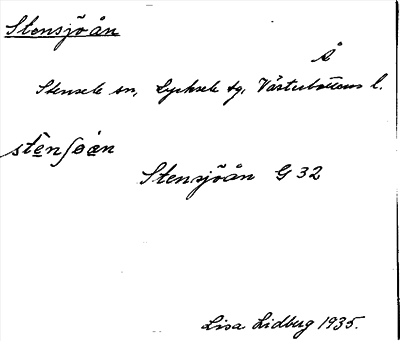 Stensjöån
Å
Stensele sn, Lycksele tg, Västerbottens l.
stènʃøån
Stensjöån G 32
Lisa Lidberg 1935.